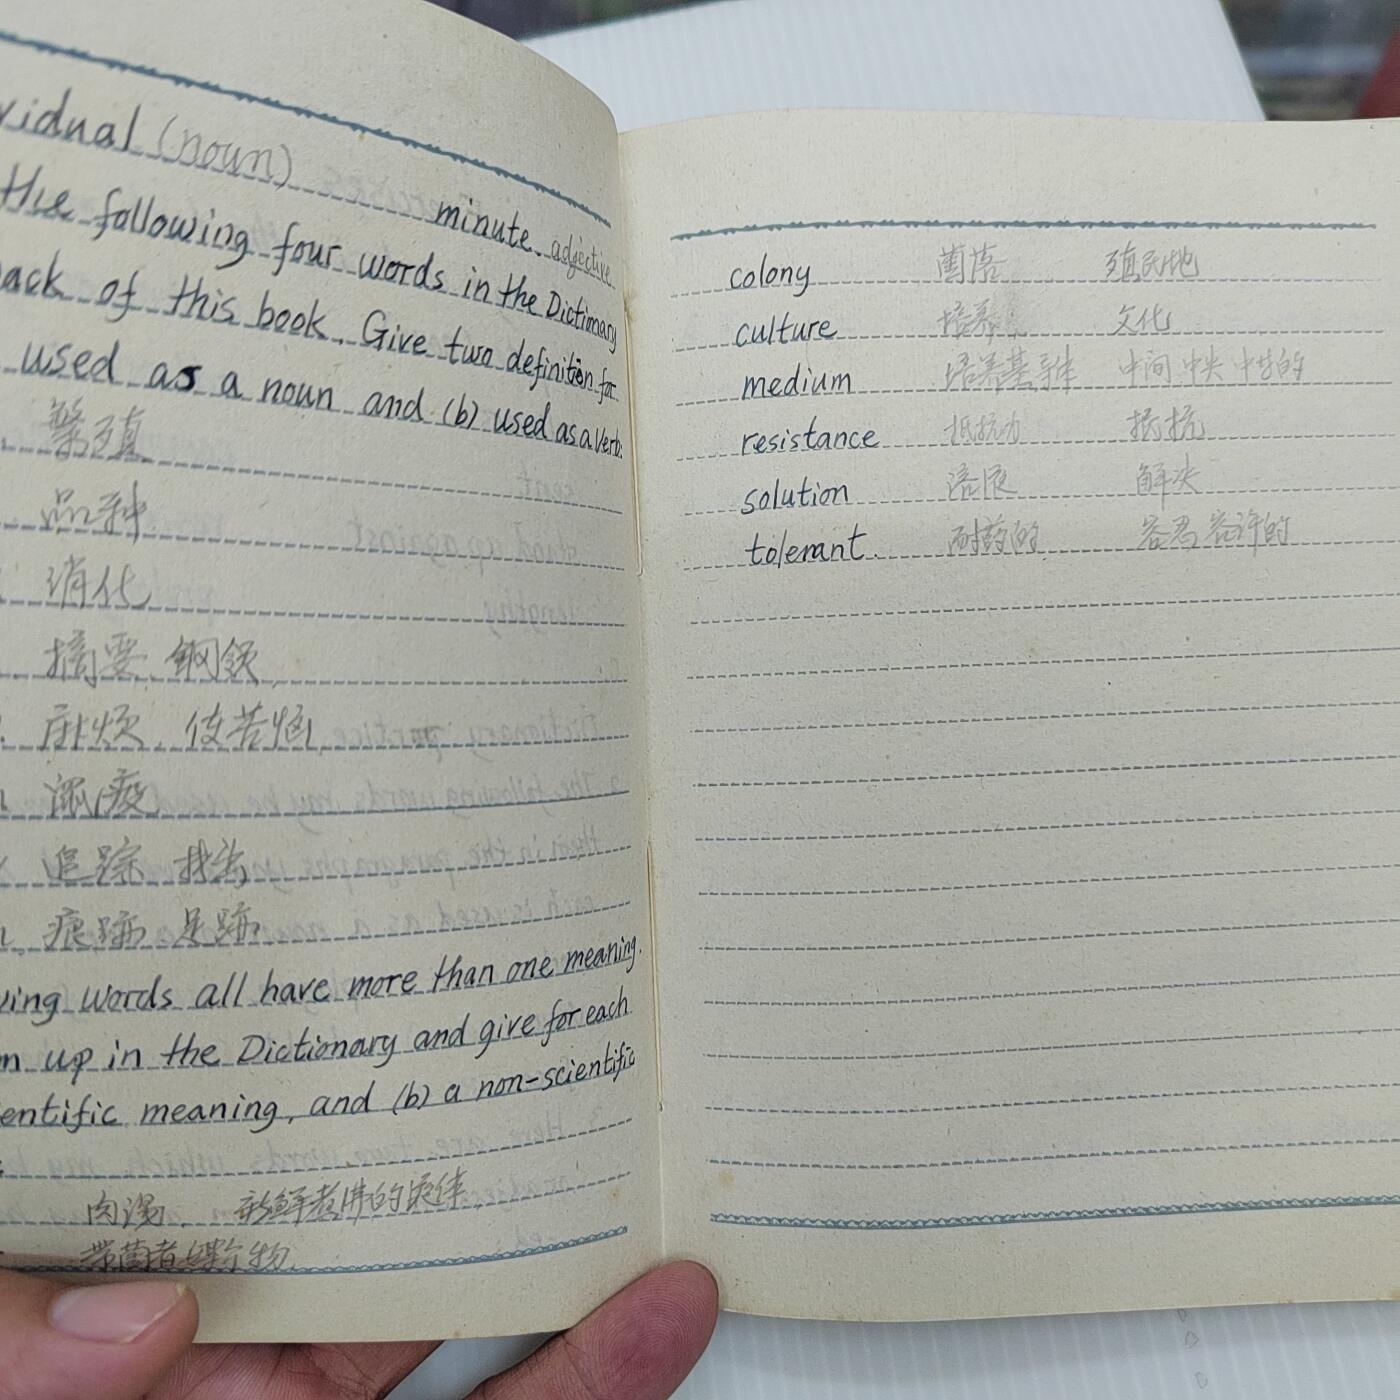 vidual (noun)
minute. adjective
the following four words in the Dictionary
ack of this book. Give two definition for
used as a noun and (b) used as a verb.
繁殖
品种
消化
摘要 钢领
麻烦 使苦恼
追踪 找出
痕跡 足跡
ving words all have more than one meaning.
n up in the Dictionary and give for each
entific meaning, and (b) a non-scientific
肉汤. 新鲜煮沸的液体
带菌者 矿物
colony 菌落 殖民地
culture 培养 文化
medium 培养基 中间 中央 中等的
resistance 抵抗力 抵抗
solution 溶液 解决
tolerant. 耐药的 容忍 容许的